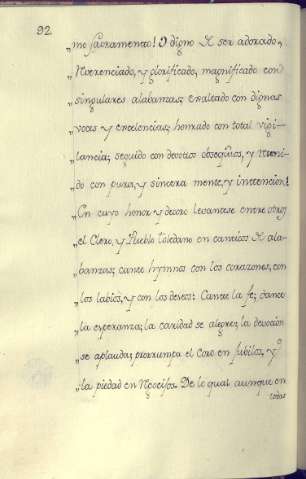 92
„mo sacramento! O digno de ser adorado,
„Reverenciado, y glorificado, magnificado con
„singulares alabanzas; exaltado con dignas
„voces y excelencias; honrado con total vigi-
„lancia; seguido con devotos obsequios, y teni-
„do con pura, y sincera mente, y intencion!
„En cuyo honor y decoro levantese entre otros
„el Clero, y Pueblo toledano en canticos de ala-
„banzas; cante hymnos con los corazones, con
„los labios, y con los deseos: Cante la fe; dance
„la esperanza; la caridad se alegre; la devocion
„se aplauda; prorrumpa el Coro en jubilos, y
„la piedad en Regocijos. De lo qual aunque en
todas